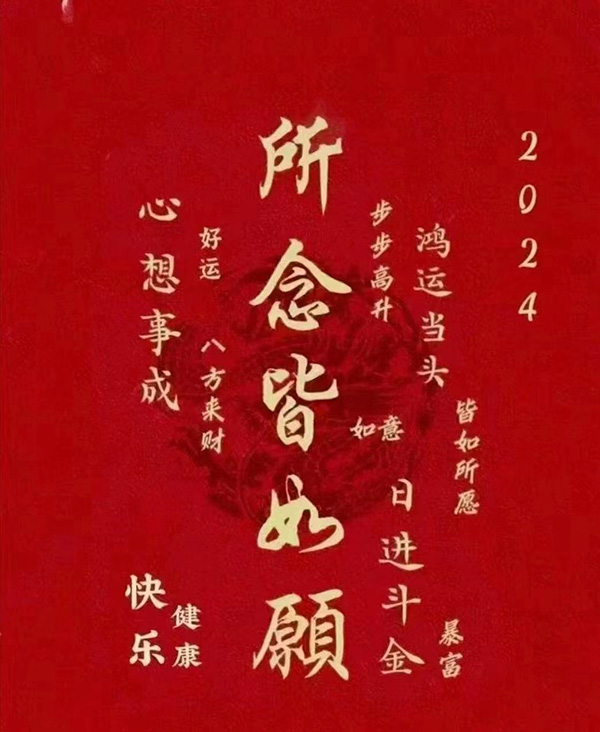 2024
皆如所愿
暴富
鸿运当头
步步高升
日进斗金
如意
所念皆如願
好运
八方来财
健康
心想事成
快乐